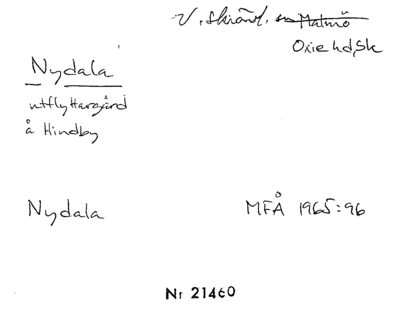 V. Skräv. sn Malmö
Oxie hd, Sk
Nydala
utflyttargård
å Hindby
Nydala MFÅ 1965:96
Nr 21460